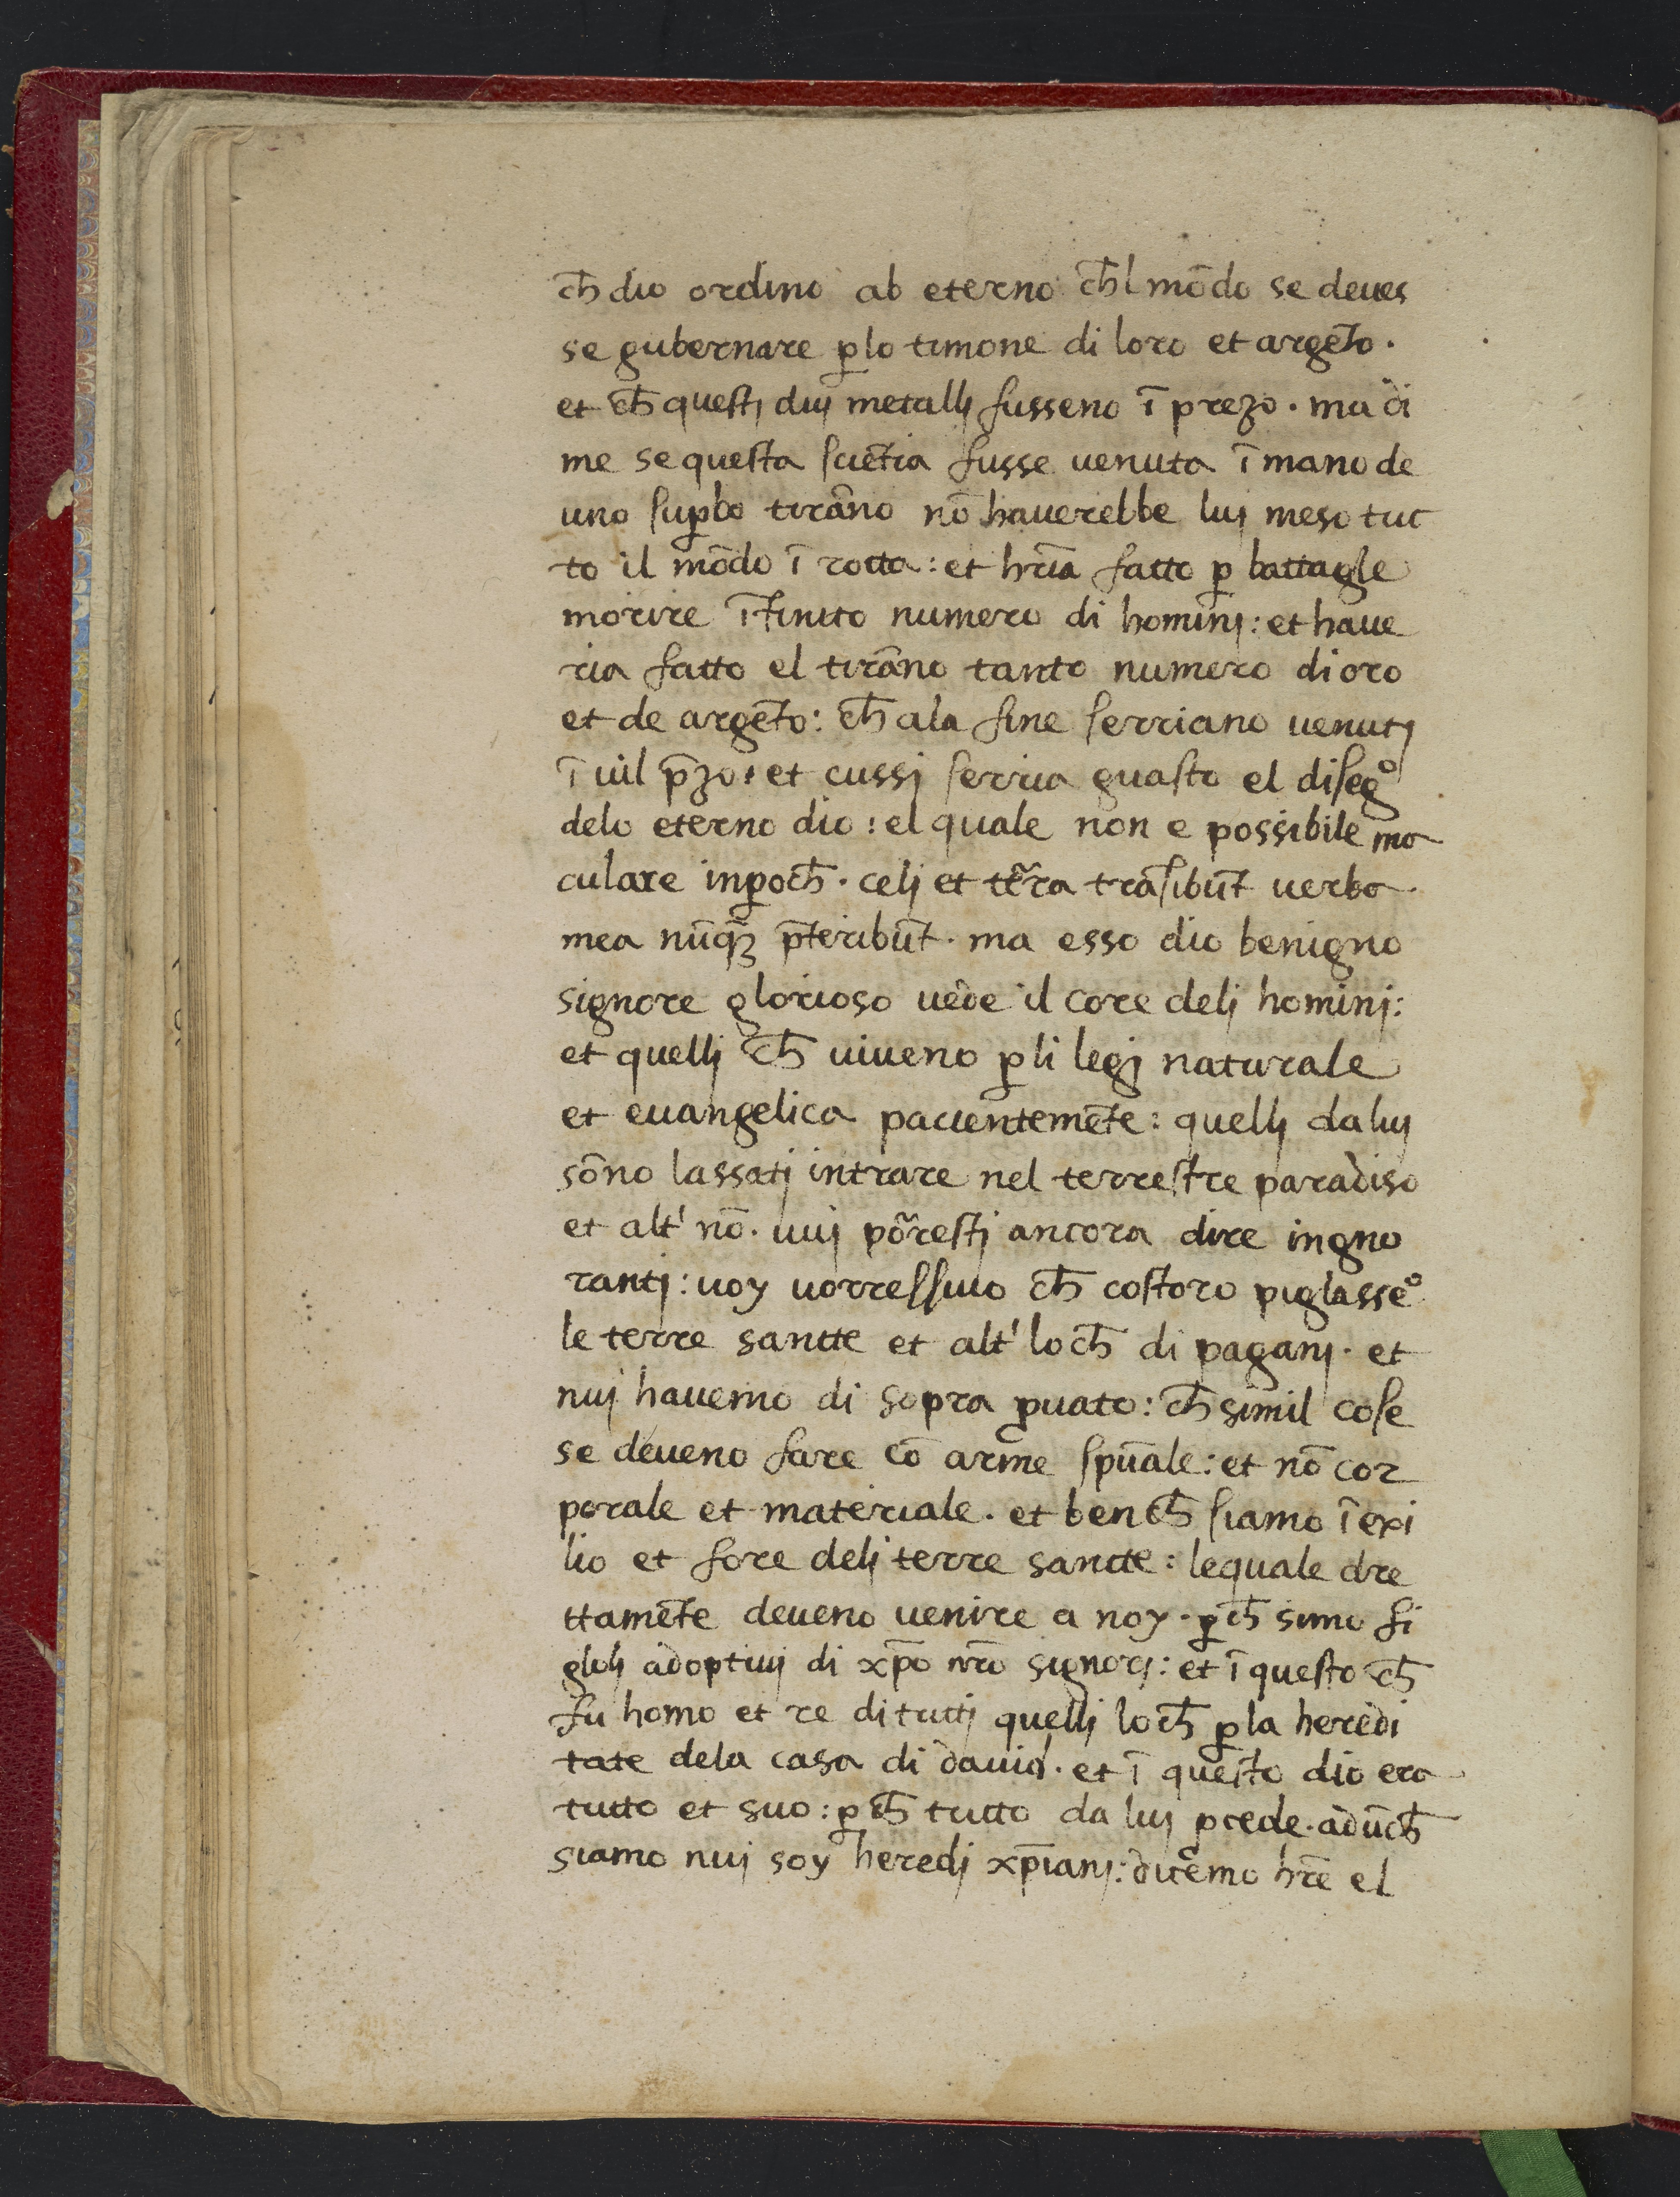 cħ dio ordino ab eterno cħl mōdo se deues
se gubernare ꝑlo timone di loro et argēto.
et cħ questj duj metallj fusseno ī prezo. ma di
me se questa sciētia fusse uenuta ī mano de
uno suꝑbo tirāno nō hauerebbe luj meso tut
to il mōdo ī rotta: et hr̄ia fatto ꝑ battagle
morire īfinito numero di hominj: et haue
ria fatto el tirāno tanto numero di oro
et de argēto: cħ ala fine serriano uenutj
ī uil p̄zo: et cussj serria guasto el disegº
delo eterno dio: el quale non e possibile ma
culare inꝑocħ. celj et tēr̄a trāsibūt uerba
mea nūqꝫ p̄teribūt. ma esso dio benigno
signore glorioso uede il core delj hominj:
et quellj cħ uiueno ꝑ li legj naturale
et euangelica pacientemēte: quellj da luj
sōno lassatj intrare nel terrestre paradiso
et altⁱ nō. uuj pōrestj ancora dire ingno
rantj: uoy uorressiuo cħ costoro piglasseº
le terre sancte et altⁱ locħ di paganj. et
nuj hauemo di sopra ꝓuato: cħ simil cose
se deueno fare cō arme spūale: et nō cor
porale et materiale. et bencħ siamo ī exi
lio et fore delj terre sancte: lequale dre
ttamēte deueno uenire a noy. ꝑcħ simo fi
glolj adoptiuj di xp̄o nr̄o signorj: et ī questo cħ
fu homo et re di tuttj quellj locħ ꝑ la heredi
tate dela casa di dauid. et ī questo dio era
tutto et suo: ꝑcħ tutto da luj ꝓcede. adūcħ
siamo nuj soy heredj xp̄ianj: diēmo hr̄e el